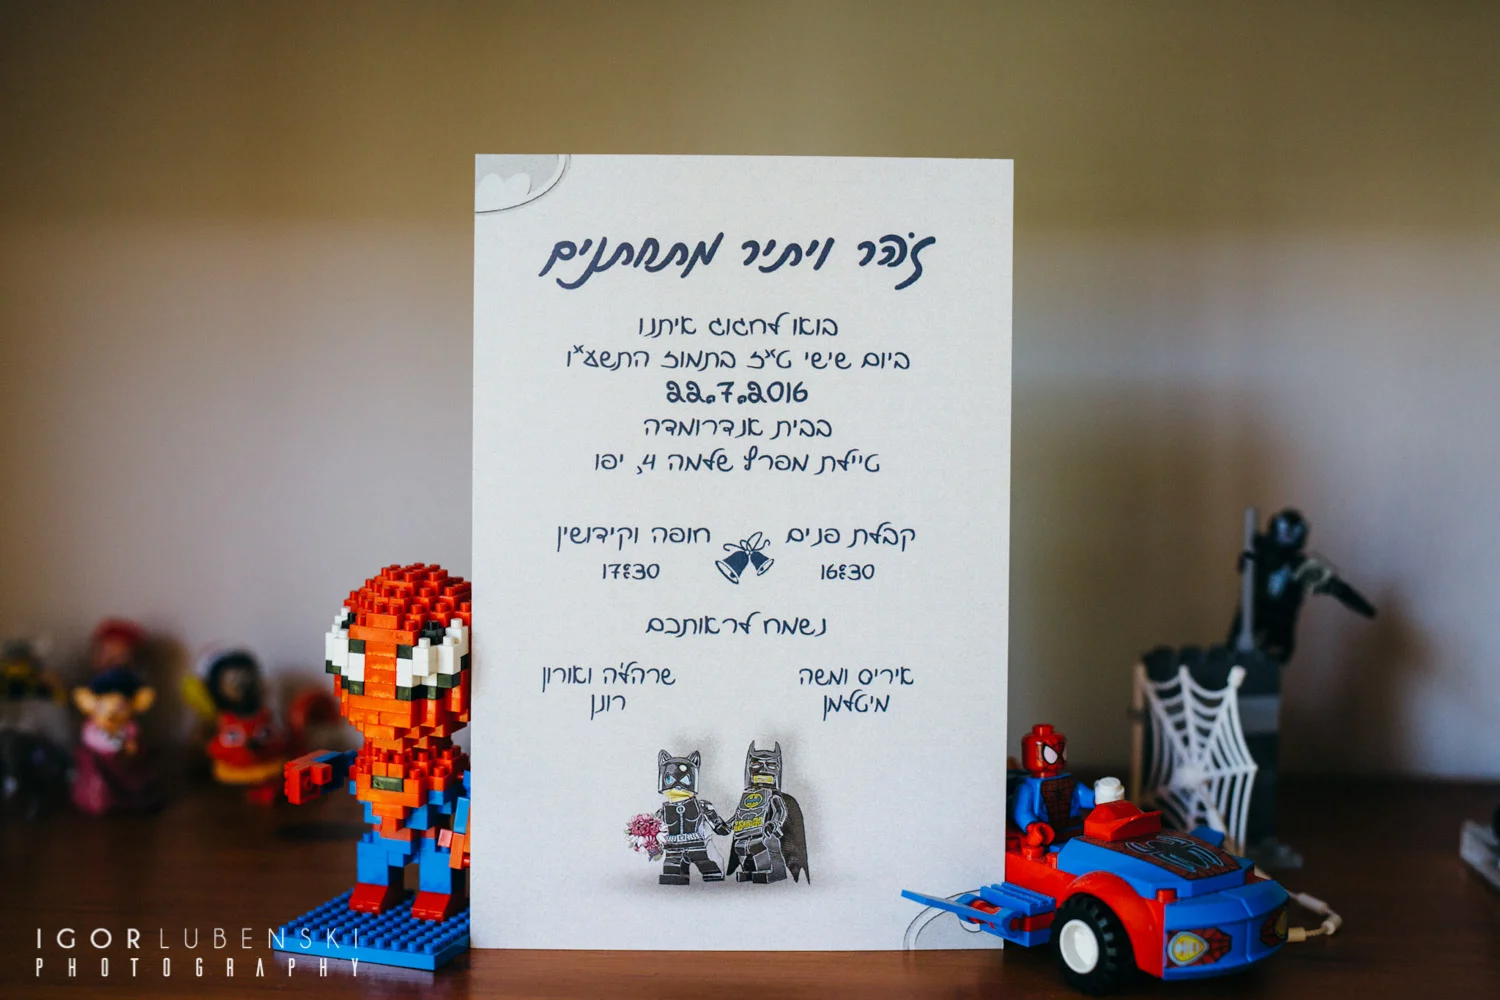 זֹהר ויתיר מתחתנים
בואו לחגוג איתנו
ביום שישי ט"ז בתמוז התשע"ו
22.7.2016
בבית אנדרומדה
טיילת מפרץ שלמה 4, יפו
קבלת פנים
16:30
חופה וקידושין
17:30
נשמח לראותכם
איריס ומשה
מיטלמן
שרהל'ה ואורון
רונן
IGORLUBENSKI
PHOTOGRAPHY